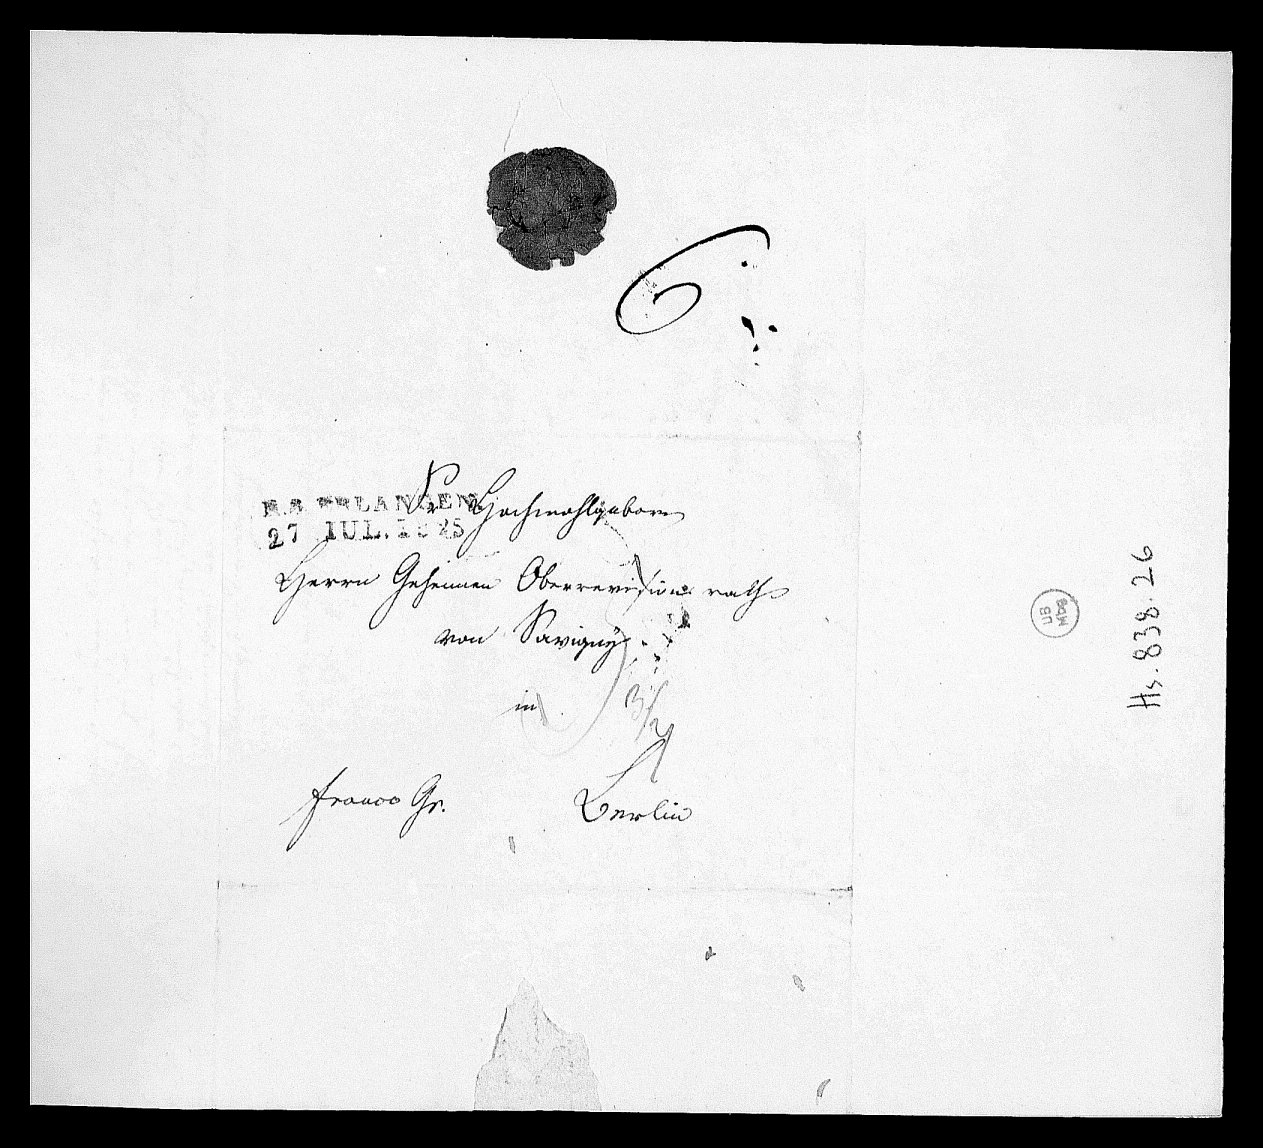 6
R.3. ERLANGEN
27 IUL. 1825
Sr Hochwohlgeboren
Herrn Geheimen Oberrevisionsrath
von Savigny
in
3/4
franco Gr.
Berlin
UB
Mbg
Hs. 838. 26